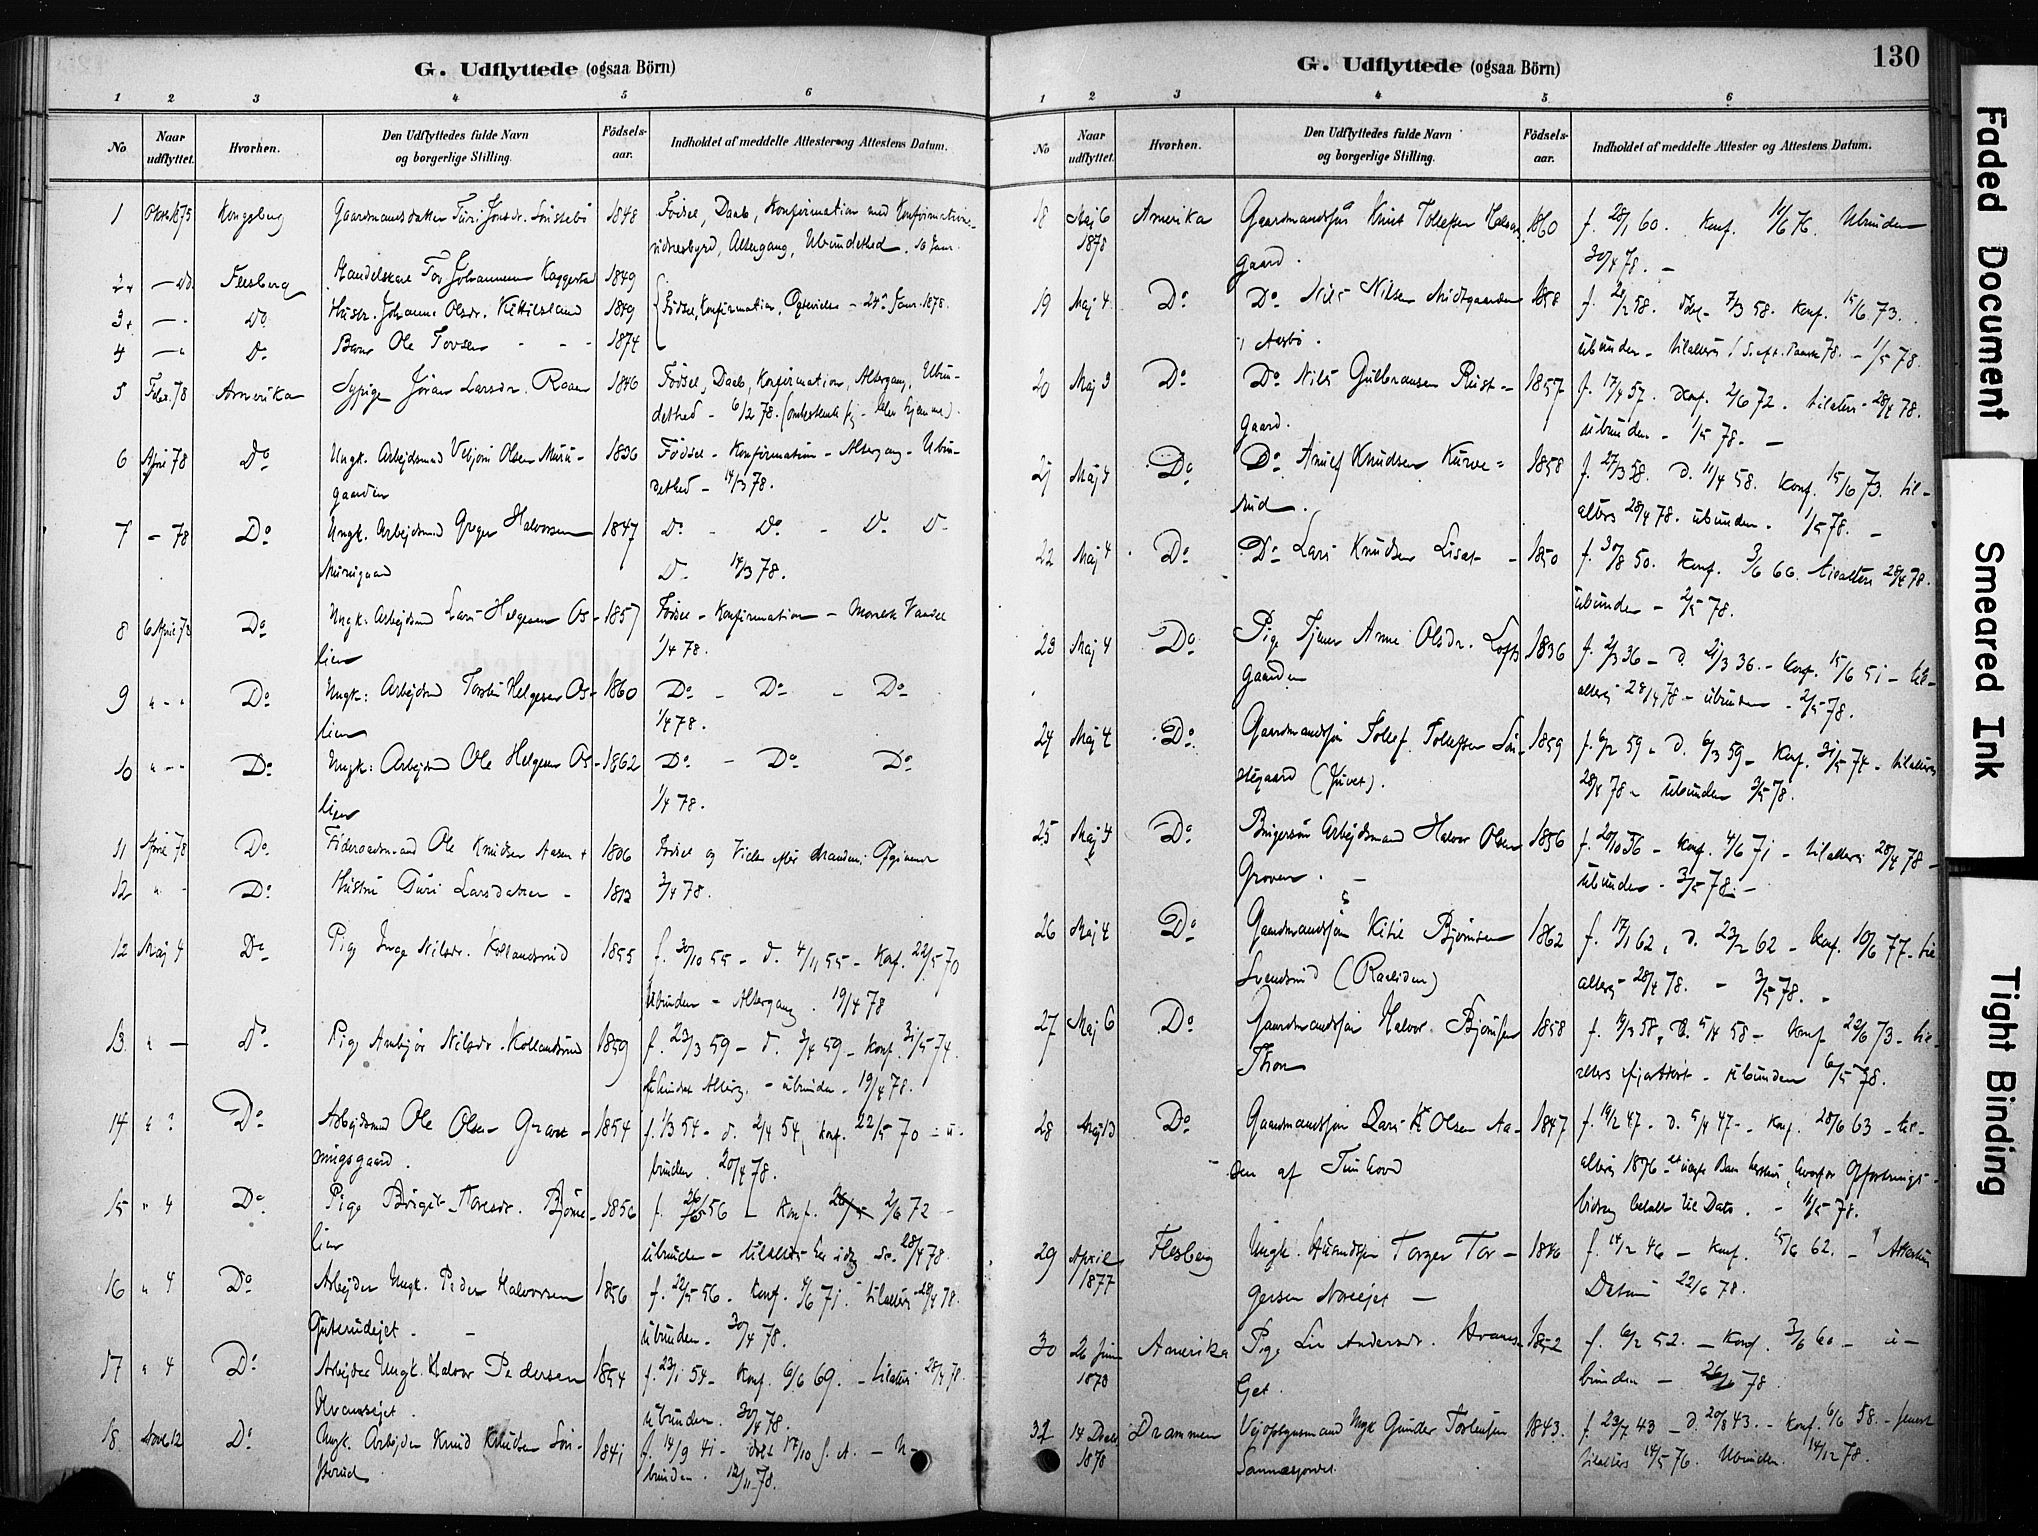 G. Udflyttede (ogsaa Börn)
1 2 3 4 5 6
No
Naar udflyttet.
Hvorhen.
Den Udflyttedes fulde Navn
og borgerlige Stilling.
Födsels-
aar.
Indholdet af meddelte Attester og Attestens Datum.
1 Oktbr 1875 Kongsberg Gaardmandsdatter Turi Jonsdr. 1848 Födsel, Daab, Konfirmation med Konfirmations-
vidnesbyrd, Altergang, Ubundethed. 10 Janr.
2 — Do Flesberg Handelskarl Tov Johannesen 1849
3 — Do Hustr. Johanne Olsdr. Kittilsland 1849 Födsel, Konfirmation, Ægtevielse – 24de Janr. 1878.
4 — Do Barn Ole Tovsen 1874
5 Febr. 78 Amerika Sypige Jöran Larsdr. Raaen 1846 Födsel, Daab, Konfirmation, Altergang, Ubun-
dethed – 6/2 78.
6 April 78 Do Ungk. Arbejdsmand Vebjörn Olsen Muru- 1836 Födsel – Konfirmation – Altergang – Ubun-
gaarden dethed – 14/3 78.
7 – 78 Do Ungk. Arbejdsmand Greger Halvorsen 1847 Do – Do – Do Do
Murugaard Do 14/3 78.
8 6 April 78 Do Ungk: Arbejdsmd Lars Helgesen Os- 1857 Födsel – Konfirmation – Moralsk Vandel
lien 1/4 78.
9 " - " Do Ungk: Arbejdsmd Torsten Helgesen Os- 1860 Do – Do – Do
lien 1/4 78.
10 " - - Do Ungk: Arbejdsmd Ole Helgesen Os- 1862 Do – Do Do
lien 1/4 78.
11 April 78 Do Föderaadsmand Ole Knudsen Aasen + 1806 Födsel og Vielse
12 " - Do Hustru Turi Larsdatter – 1812 3/4 78.
12 Maj 4 Do Pige Inge Nilsdr. Kollandsrud 1855 f. 30/10 55 – d. 4/11 55 – Konf. 22/5 70
Ubunden – Altergang. 19/4 78
13 " — Do Pige Anbjör Nilsdr. Kollandsrud 1859 f. 23/3 59 – d. 3/4 59 – Konf. 31/5 74.
– ubunden – 19/4 78.
14 " ? Do Arbejdsmd Ole Olsen Grav- 1854 f. 1/3 54 – d. 2/4 54, Konf. 22/5 70 – u-
ningsgaard. bunden. 20/4 78.
15 " 4 Do Pige Birgit Toresdr. Björne- 1856 f. 26/5 56 – Konf. 2/6 72 –
lien ubunden – 28/4 78.
16 " 4 Do Arbejder Ungk. Peder Halvorsen 1856 f. 22/5 56. Konf. 4/6 71. tilalters 28/4 78.
Guterudejet. – ubunden. 30/4 78.
17 " 4 Do Arbejder Ungk. Halvor Pedersen 1854 f. 23/1 54 – Konf. 6/6 69. – tilalters 28/4 78.
Hvamsejet. ubunden. 30/4 78.
18 Novbr 12 Do Ungk. Arbejder Knud Knudsen Sön- 1841 f. 14/9 41 – döbt 17/10 s. A. – U-
sterud bunden. 12/11 78.
130
G. Udflyttede (ogsaa Börn)
1 2 3 4 5 6
No
Naar udflyttet.
Hvorhen.
Den Udflyttedes fulde Navn
og borgerlige Stilling.
Födsels-
aar.
Indholdet af meddelte Attester og Attestens Datum.
18 Maj 6 Amerika Gaardmandssön Knut Tollefsen 1860 f. 28/1 60. Konf. 11/6 76. Ubunden
1878 gaard. 30/4 78. –
19 Maj 4 Do Do Nils Nilsen Midtgaarden 1858 f. 21/2 58. döbt 7/3 58. Konf. 15/6 73.
i Aasbö. ubunden – tilalters 1 S. eft. Paaske 78. – 1/5 78.
20 Maj 3 Do Do Nils Gulbransen Rust- 1857 f. 17/4 57. Konf. 2/6 72. tilalters – 28/4 78.
gaard. ubunden – 1/5 78. —
21 Maj 4 Do Do Knudsen Kurve= 1858 f. 27/3 58. d. 11/4 58. Konf. 15/6 73. til-
rud. alters 28/4 78. ubunden. 1/5 78. –
22 Maj 4 Do Do Lars Knudsen – 1850 f. 30/8 50. Konf. 3/6 66. tilalters 28/4 78.
ubunden – 2/5 78.
23 Maj 4 Do Pige Tjener Anne Olsdr. Lofts- 1836 f. 2/3 36 – d. 21/3 36. – Konf. 15/6 51 – til-
gaarden alters 28/4 78 – ubunden – 2/5 78.
24 Maj 4 Do Gaardmandssön Tollef Tollefsen Sön- 1859 f. 6/2 59 – d. 6/3 59 – Konf. 31/5 74 – tilalters
stegaard (Juvet). 28/4 78 – ubunden 3/5 78.
25 Maj 4 Do Arbejdsmand Halvor Olsen 1856 f. 20/10 56 – Konf. 4/6 71 – tilalters 28/4 78 –
Groven. – ubunden – 3/5 78. –
26 Maj 4 Do Gaardmandssön Kitil Björnsen 1862 f. 17/1 62, d. 23/2 62 – Konf. 10/6 77 – til
Svendsrud (Raaliden) alters – 28/4 78. – 3/5 78. –
27 Maj 6 Do Gaardmandssön Halvor Björnsen 1858 f. 19/3 58, d. 5/4 58 – Konf. 22/6 73 – til-
Thon alters ifjor Höst – ubunden 6/5 78.
28 Maj 13 Do Gaardmandssön Lars K Olsen Aa- 1847 f. 19/2 47. d. 5/4 47 – Konf. 28/6 63 – til-
sen af Tunhovd alters 1876 – et uægte Barn, hvorfor Opfostrings-
bidrag betalt til Dato. – 11/5 78.
29 April Flesberg Ungk. Torger Tor- 1846 f. 14/2 46 – Konf. 15/6 62. – Attestens
1877 gersen – Datum 22/6 78.
30 26 Juni Amerika Pige Liv Andersdr. Hvams- 1852 f. 6/2 52. – Konf. – u-
1878 ejet. bunden – 26/6 78.
32 14 Decbr Drammen Vejopsynsmand Ungk Gunder Torstensen 1843. f. 23/7 43 – d. 20/8 43. – Konf. 6/6 58 – senest
1878 tilalters 14/5 76. Ubunden. 14/12 78.
Faded Document
Smeared Ink
Tight Binding